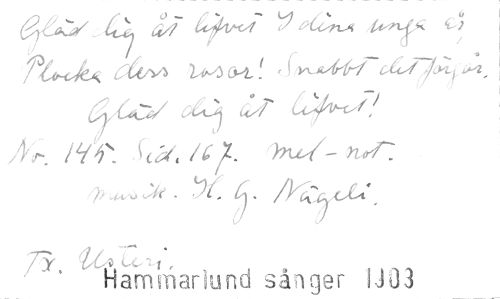 Gläd dig åt lifvet I dina unga år,
Plocka dess rosor! Snabbt det förgår.
Gläd dig åt lifvet!
No. 145. Sid. 167. mel-not.
musik. H. G. Nägeli.
Tx. Usteri.
Hammarlund sånger 1J03